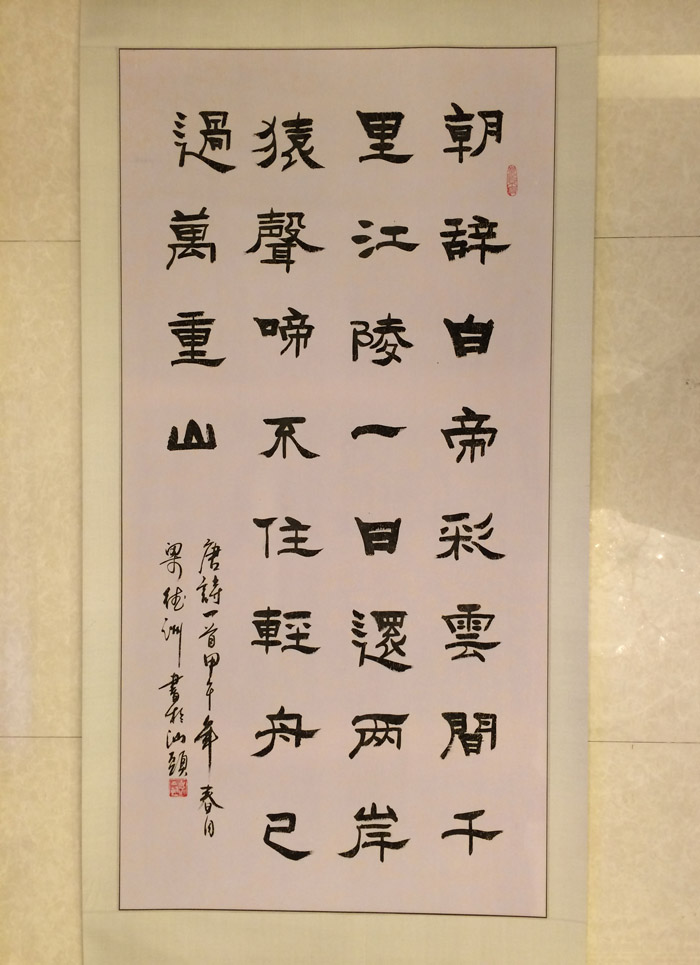 朝辞白帝彩雲間千
里江陵一日還两岸
猿聲啼不住輕舟已
過萬重山
唐詩一首甲午年春月
梁德洲書於汕頭